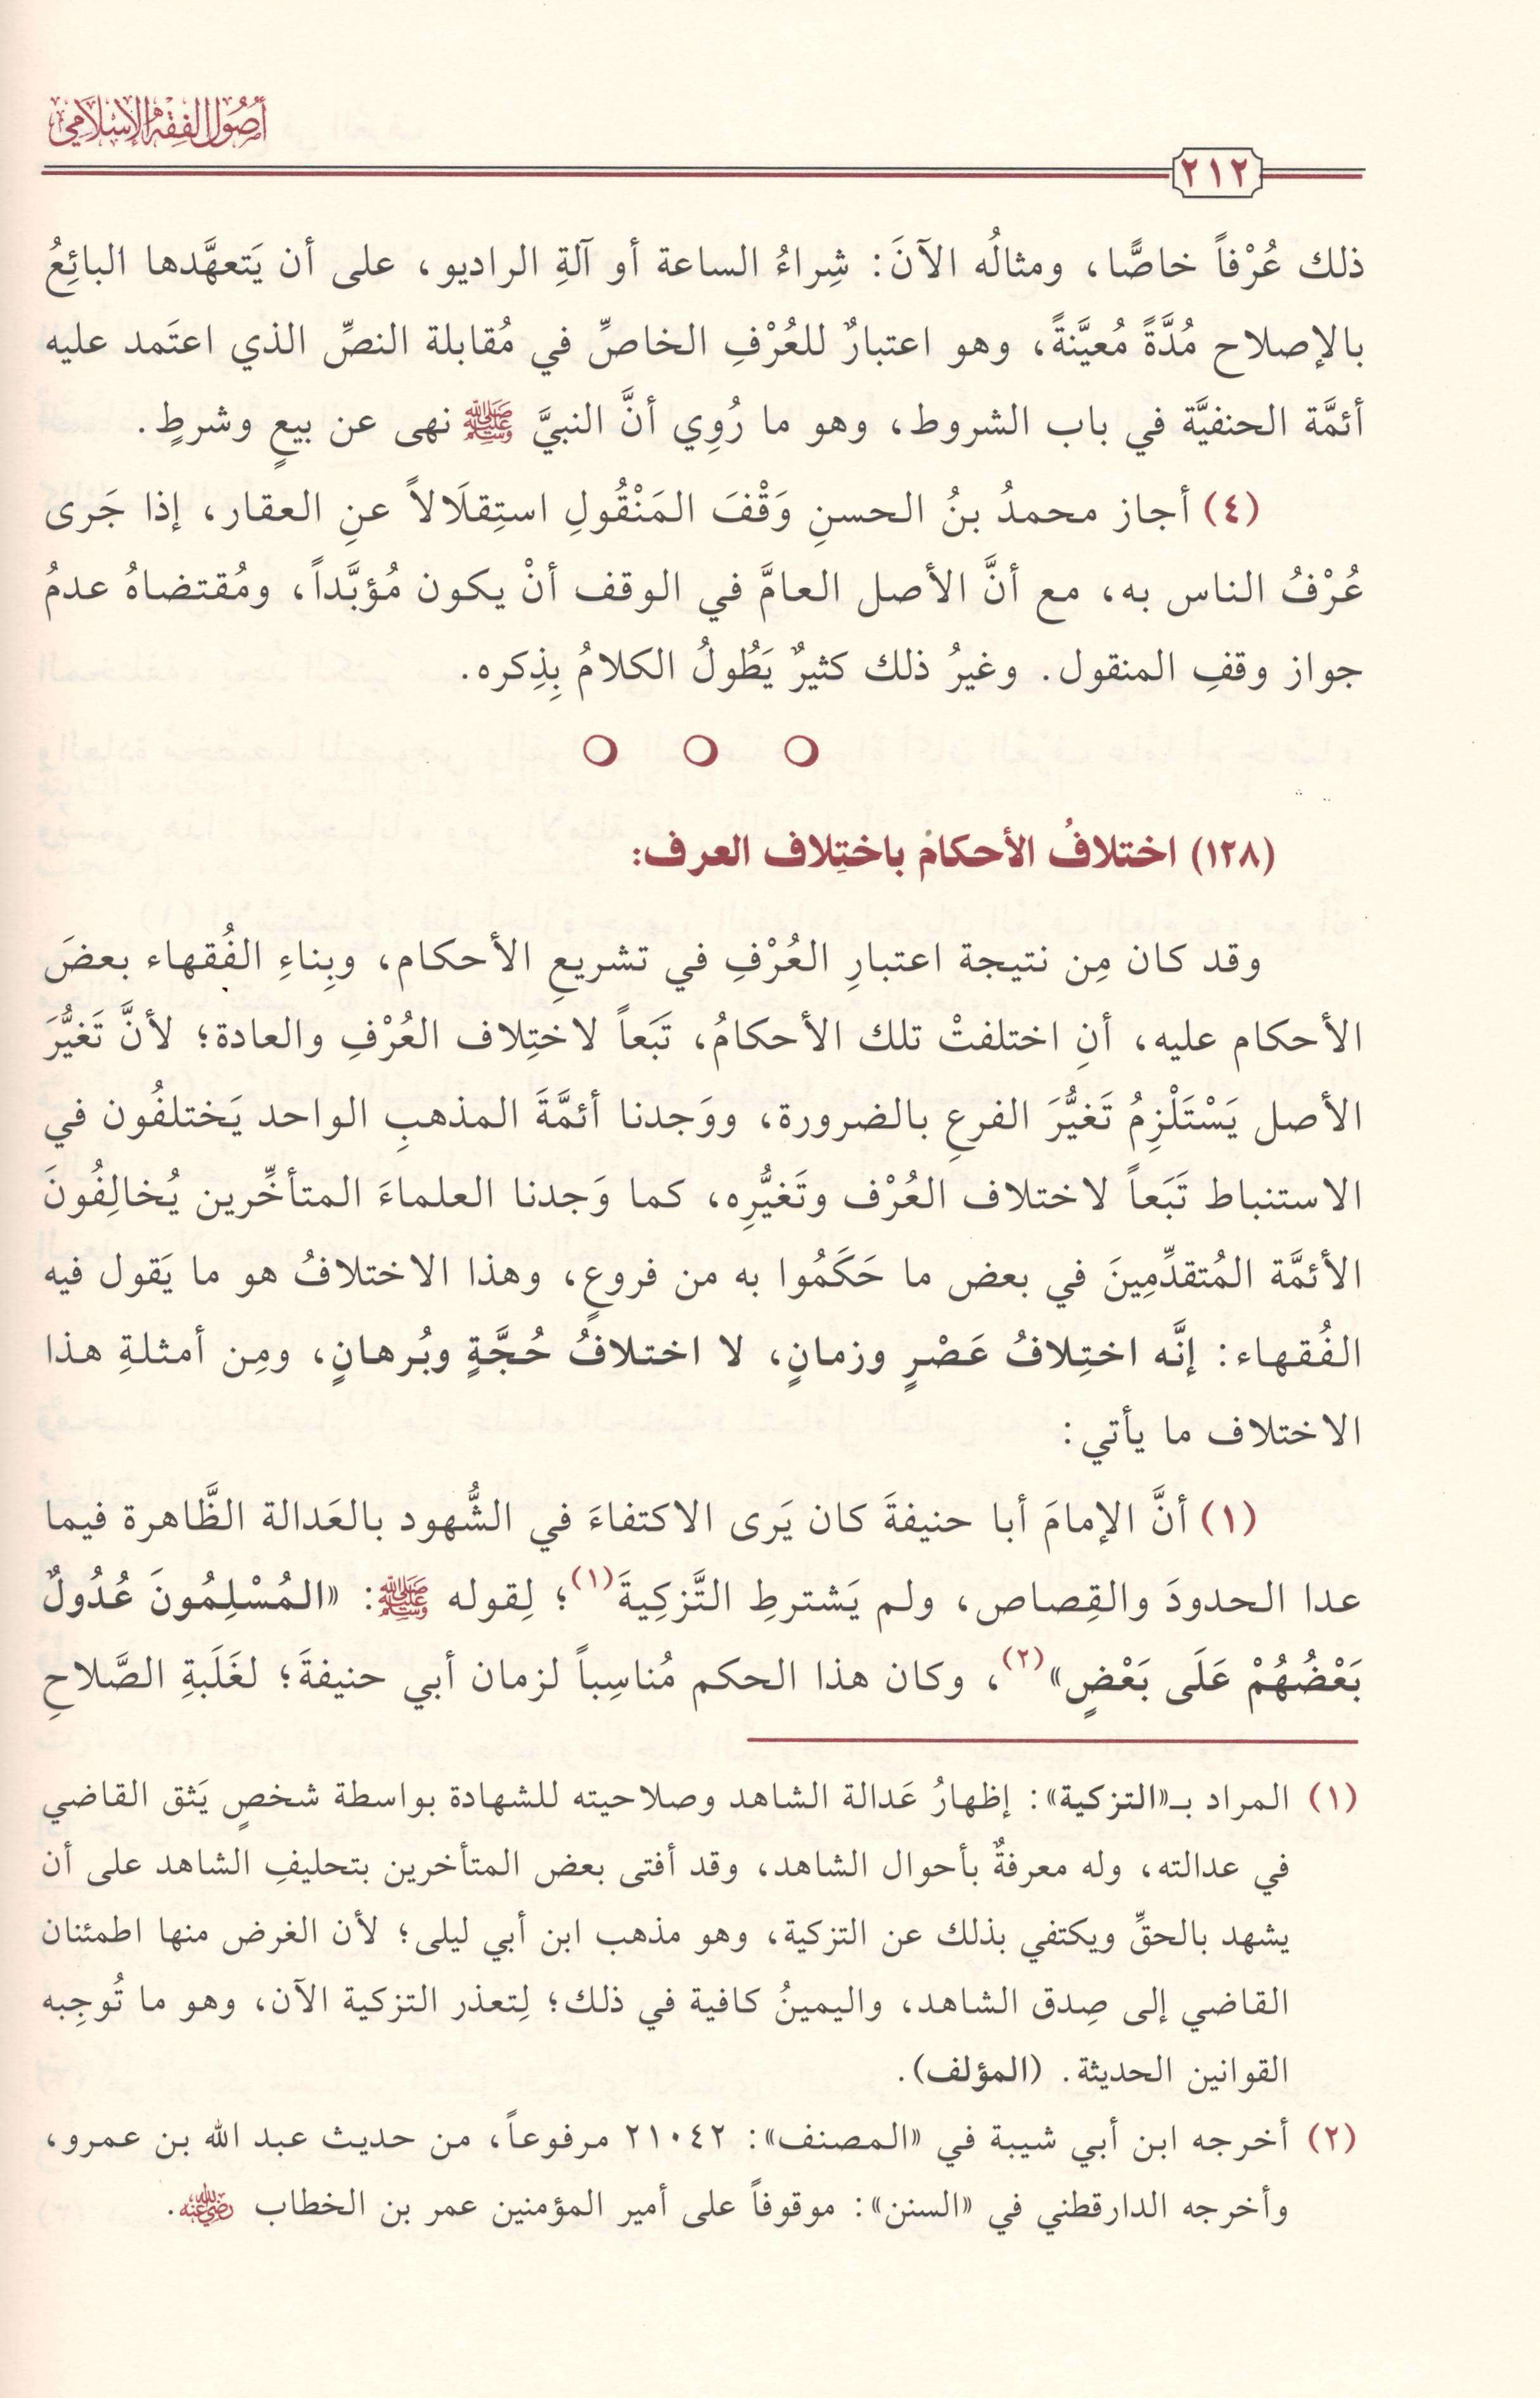 أصول الفقه الإسلامي
٢١٢
ذلك عُرْفاً خاصًّا، ومثالُه الآنَ: شِراءُ الساعة أو آلةِ الراديو، على أن يَتعهَّدها البائِعُ
بالإصلاح مُدَّةً مُعيَّنةً، وهو اعتبارٌ للعُرْفِ الخاصِّ في مُقابلة النصِّ الذي اعتَمد عليه
أئمَّة الحنفيَّة في باب الشروط، وهو ما رُوِي أنَّ النبيَّ ﷺ نهى عن بيعٍ وشرطٍ.
(٤) أجاز محمدُ بنُ الحسنِ وَقْفَ المَنْقُولِ استِقلَالاً عنِ العقار، إذا جَرى
عُرْفُ الناس به، مع أنَّ الأصل العامَّ في الوقف أنْ يكون مُؤبَّداً، ومُقتضاهُ عدمُ
جواز وقفِ المنقول. وغيرُ ذلك كثيرٌ يَطُولُ الكلامُ بِذِكره.
(١٢٨) اختلافُ الأحكام باختِلاف العرف:
وقد كان مِن نتيجة اعتبارِ العُرْفِ في تشريعِ الأحكام، وبِناءِ الفُقهاء بعضَ
الأحكام عليه، أنِ اختلفتْ تلك الأحكامُ، تَبَعاً لاختِلاف العُرْفِ والعادة؛ لأنَّ تَغيُّرَ
الأصل يَسْتَلْزِمُ تَغيُّرَ الفرعِ بالضرورة، ووَجدنا أئمَّةَ المذهبِ الواحد يَختلفُون في
الاستنباط تَبَعاً لاختلاف العُرْف وتَغيُّرِه، كما وَجدنا العلماءَ المتأخِّرين يُخالِفُونَ
الأئمَّة المُتقدِّمِينَ في بعض ما حَكَمُوا به من فروعٍ، وهذا الاختلافُ هو ما يَقول فيه
الفُقهاء: إنَّه اختِلافُ عَصْرٍ وزمانٍ، لا اختلافُ حُجَّةٍ وبُرهانٍ، ومِن أمثلةِ هذا
الاختلاف ما يأتي:
(١) أنَّ الإمامَ أبا حنيفةَ كان يَرى الاكتفاءَ في الشُّهود بالعَدالة الظَّاهرة فيما
عدا الحدودَ والقِصاص، ولم يَشترطِ التَّزكِيةَ(١)؛ لِقوله ﷺ: «المُسْلِمُونَ عُدُولٌ
بَعْضُهُمْ عَلَى بَعْضٍ»(٢)، وكان هذا الحكم مُناسِباً لزمان أبي حنيفةَ؛ لغَلَبةِ الصَّلاحِ
(١) المراد بـ«التزكية»: إظهارُ عَدالة الشاهد وصلاحيته للشهادة بواسطة شخصٍ يَثق القاضي
في عدالته، وله معرفةٌ بأحوال الشاهد، وقد أفتى بعض المتأخرين بتحليفِ الشاهد على أن
يشهد بالحقِّ ويكتفي بذلك عن التزكية، وهو مذهب ابن أبي ليلى؛ لأن الغرض منها اطمئنان
القاضي إلى صِدق الشاهد، واليمينُ كافية في ذلك؛ لِتعذر التزكية الآن، وهو ما تُوجِبه
القوانين الحديثة. (المؤلف).
(٢) أخرجه ابن أبي شيبة في «المصنف»: ٢١٠٤٢ مرفوعاً، من حديث عبد الله بن عمرو،
وأخرجه الدارقطني في «السنن»: موقوفاً على أمير المؤمنين عمر بن الخطاب رضي الله عنه.